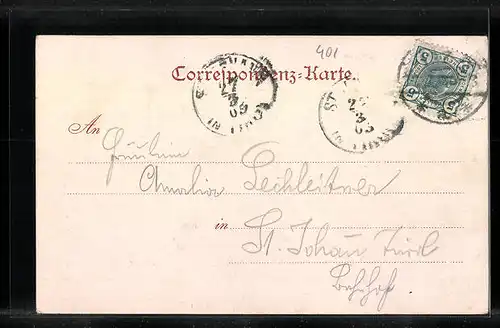 401
Correspondenz-Karte.
5 5
27
3
03
27
3
03
An
Fräulein
Amalia Lechleitner
in
St. Johann Tirol
Bahnhof